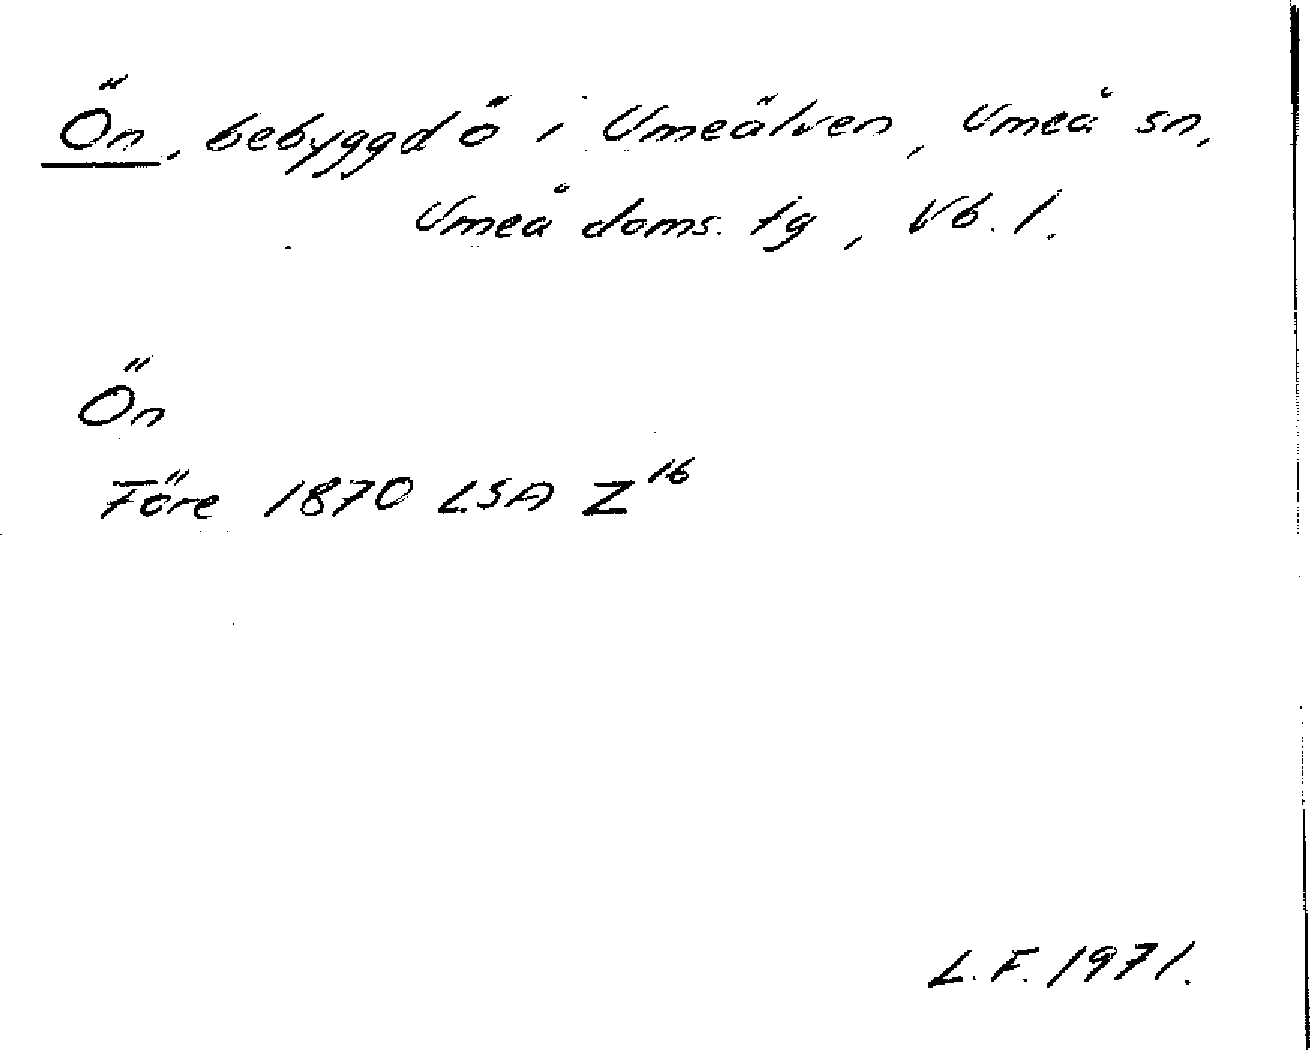 Ön, bebyggd ö i Umeälven, Umeå sn,
Umeå doms. tg, Vb. l.
Ön
Före 1870 LSA Z16
L.F. 1971.